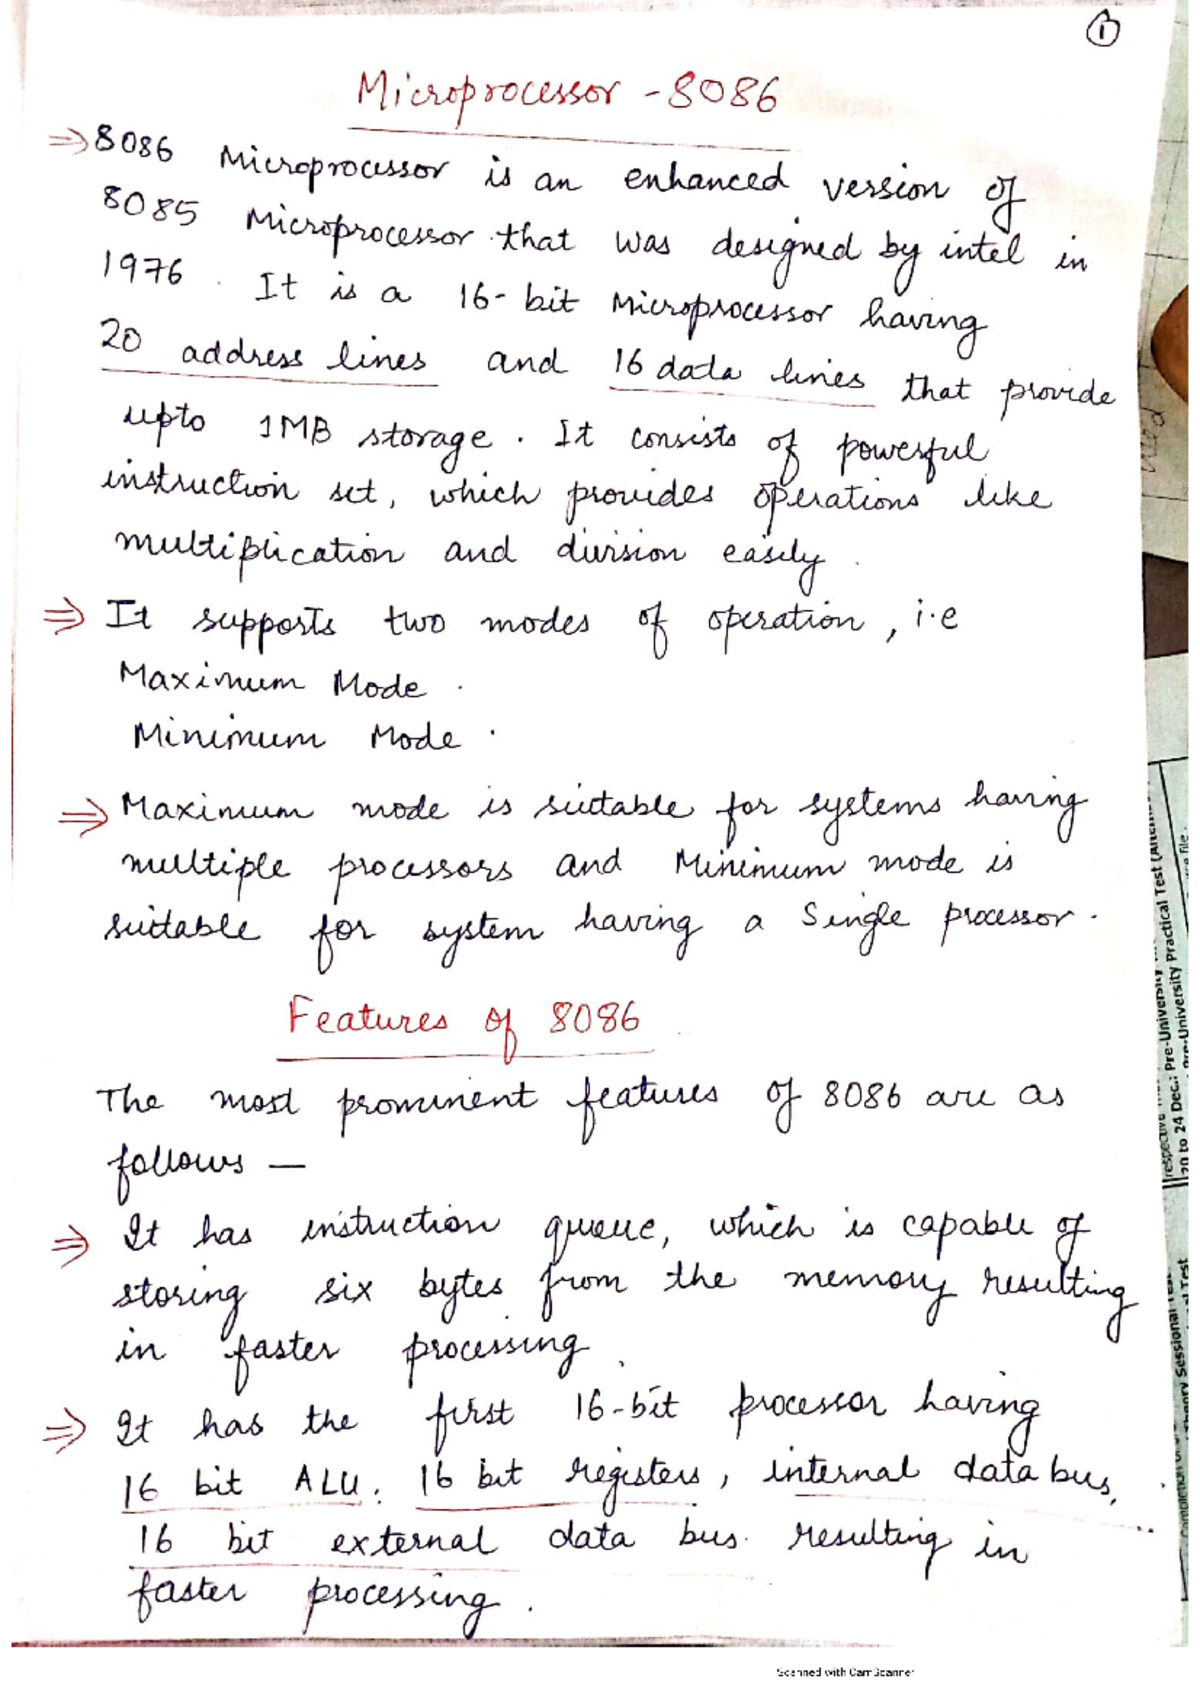 1
Microprocessor - 8086
⇒ 8086 Microprocessor is an enhanced version of
8085 Microprocessor that was designed by intel in
1976. It is a 16-bit Microprocessor having
20 address lines and 16 data lines that provide
upto 1MB storage. It consists of powerful
instruction set, which provides operations like
multiplication and division easily.
⇒ It supports two modes of operation, i.e
Maximum Mode.
Minimum Mode.
⇒ Maximum mode is suitable for systems having
multiple processors and Minimum mode is
suitable for system having a Single processor.
Features of 8086
The most prominent features of 8086 are as
follows —
⇒ It has instruction queue, which is capable of
storing six bytes from the memory resulting
in faster processing.
⇒ It has the first 16-bit processor having
16 bit ALU, 16 bit registers, internal data bus,
16 bit external data bus resulting in
faster processing.
20 to 24 Dec.: Pre-University Practical Test
Scanned with CamScanner